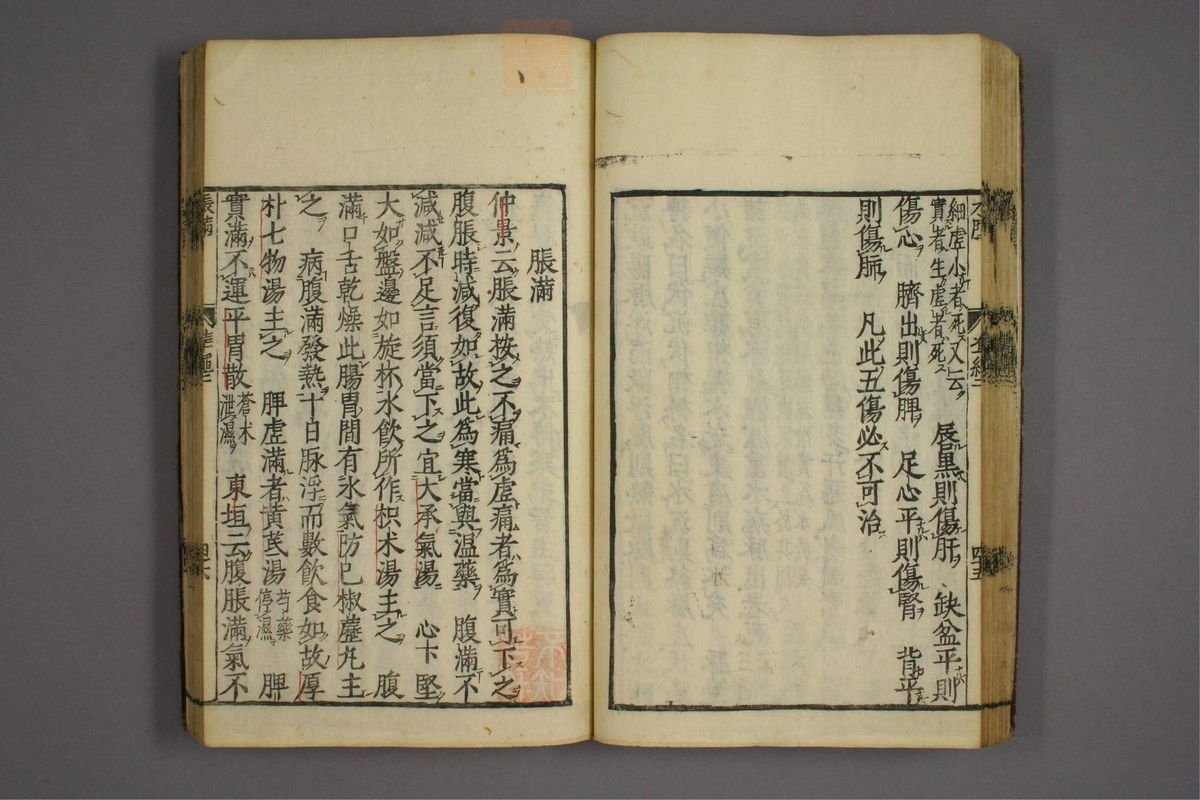 細虛小者死又云
實者生虛者死
唇黑則傷肝　缺盆平則
傷心而臍出則傷脾　足心平則傷腎　背平
則傷肺　凡此五傷必不可治
四十五
脹滿
仲景云脹滿按之不痛爲虛痛者爲實可下之
腹脹時減復如故此爲寒當與温藥　腹滿不
減減不足言須當下之宜大承氣湯　心下堅
大如盤邊如旋杯水飲所作枳朮湯主之　腹
滿口舌乾燥此腸胃間有水氣防己椒藶丸主
之　病腹滿發熱十日脉浮而數飲食如故厚
朴七物湯主之　脾虛滿者黄芪湯芍藥停濕　脾
實滿不運平胃散蒼朮泄濕　東垣云腹脹滿氣不
脹滿
四十六